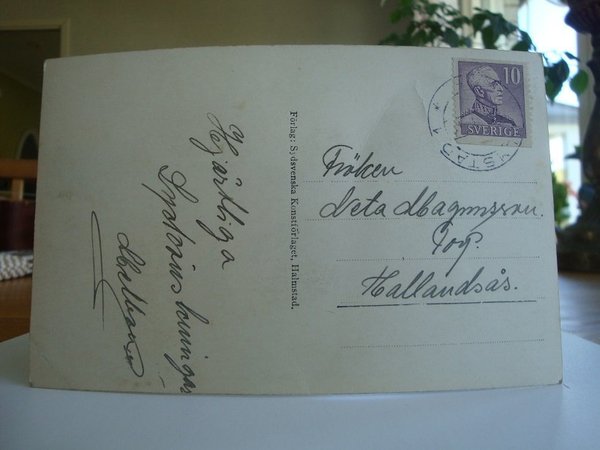 Hjärtliga
Lyckönskningar
Förlag: Sydsvenska Konstförlaget, Halmstad.
10
SVERIGE
Fröken
Neta Magnusson.
Torp.
Hallandsås.